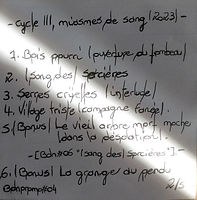 - cycle III, miasmes de sang (2023) -
1. Bois pourri (ouverture du tombeau)
2. (sang des sorcières)
3. Serres cruelles (interlude)
4. Village triste (campagne fange).
5. (Bonus) Le vieil arbre mort moche
(dans la désolation).
- [Bdn#06 "(sang des) Sorcières"]. -
6. (Bonus) La grange du pendu
Bdnpromo#04
2/5